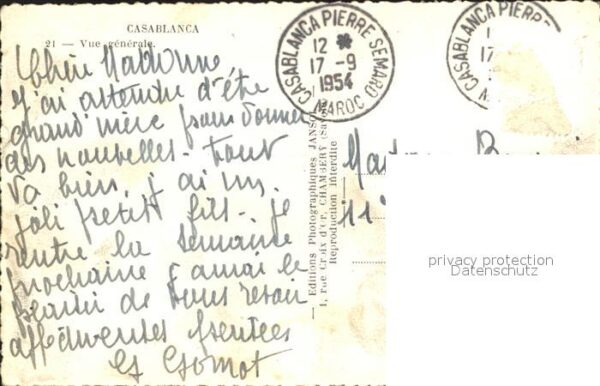 CASABLANCA
21 — Vue générale.
Chère Madonne,
J'ai attendu d'être
grand'mère pour donner
des nouvelles - tout
va bien, j'ai un
joli petit fils - je
rentre la semaine
prochaine j'aurai le
plaisir de vous revoir
affectueuses pensées
G Gomot
CASABLANCA PIERRE SEMARD
12 *
17 -9
1954
MAROC
CASABLANCA PIERRE
17
— Editions Photographiques JANSOL
1, rue Croix d'Or, CHAMBÉRY (Savoie)
Reproduction interdite
11
privacy protection
Datenschutz